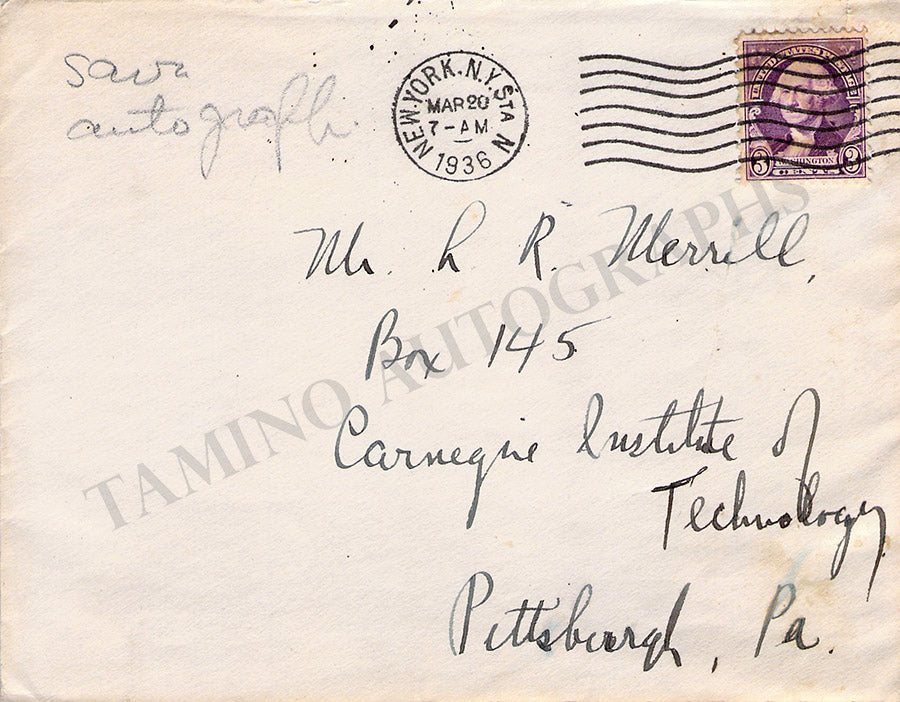 save
autograph.
NEW YORK, N.Y. STA N
MAR 20
7-AM
1936
UNITED STATES POSTAGE
3 WASHINGTON 3
CENTS
Mr L R. Merrill,
Box 145
Carnegie Institute of
Technology
Pittsburgh, Pa.
TAMINO AUTOGRAPHS